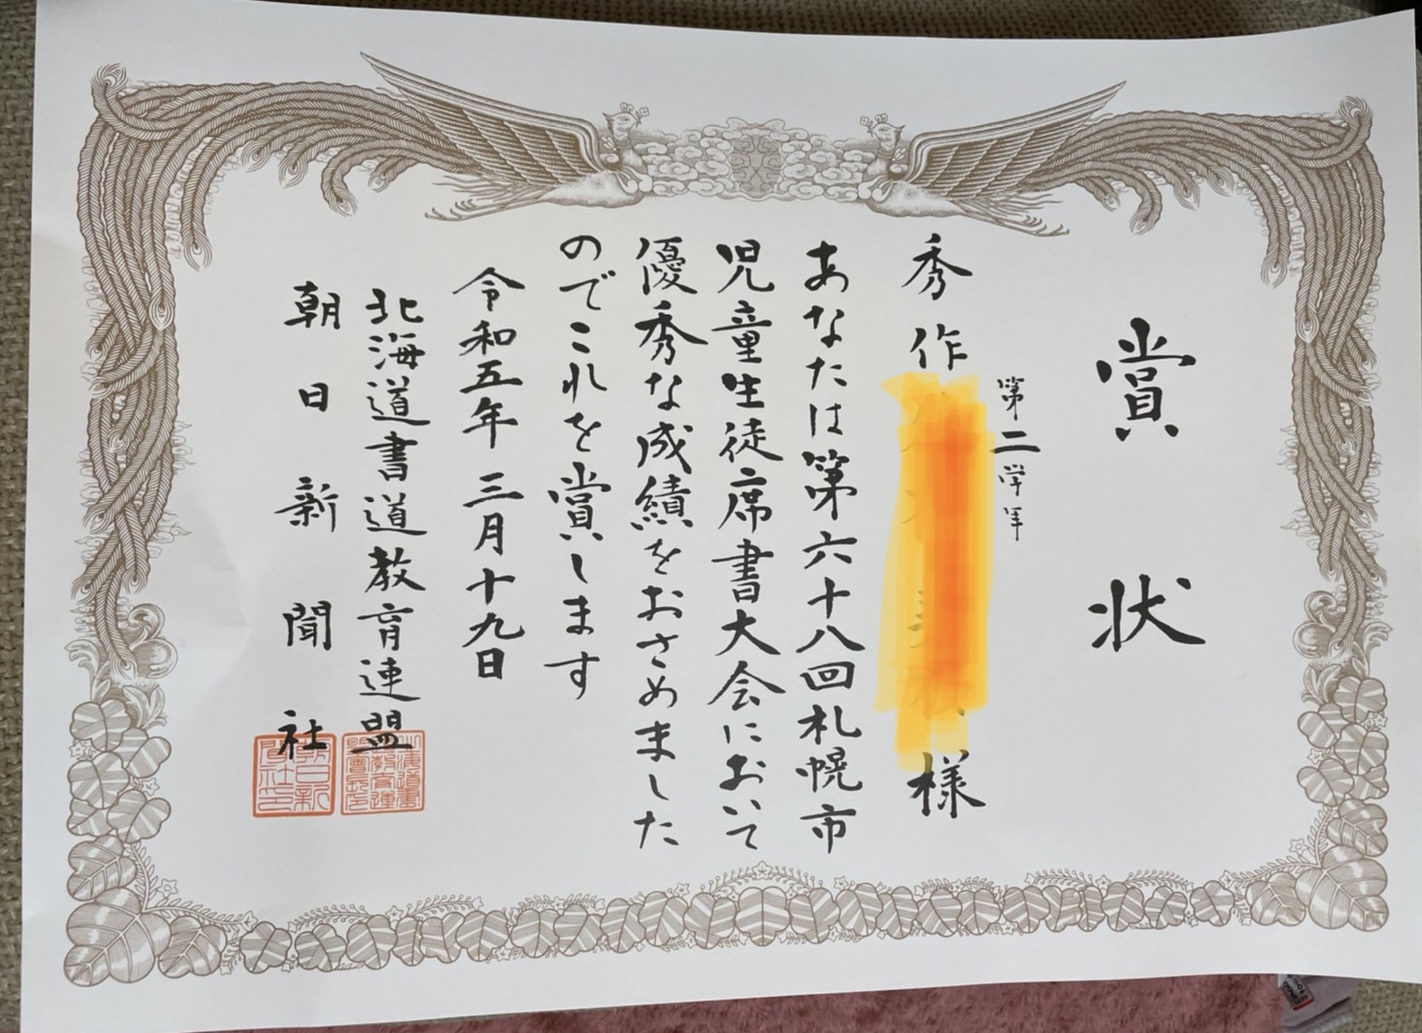 賞状
第二学年
秀作
様
あなたは第六十八回札幌市
児童生徒席書大会において
優秀な成績をおさめました
のでこれを賞します
令和五年三月十九日
北海道書道教育連盟
朝日新聞社